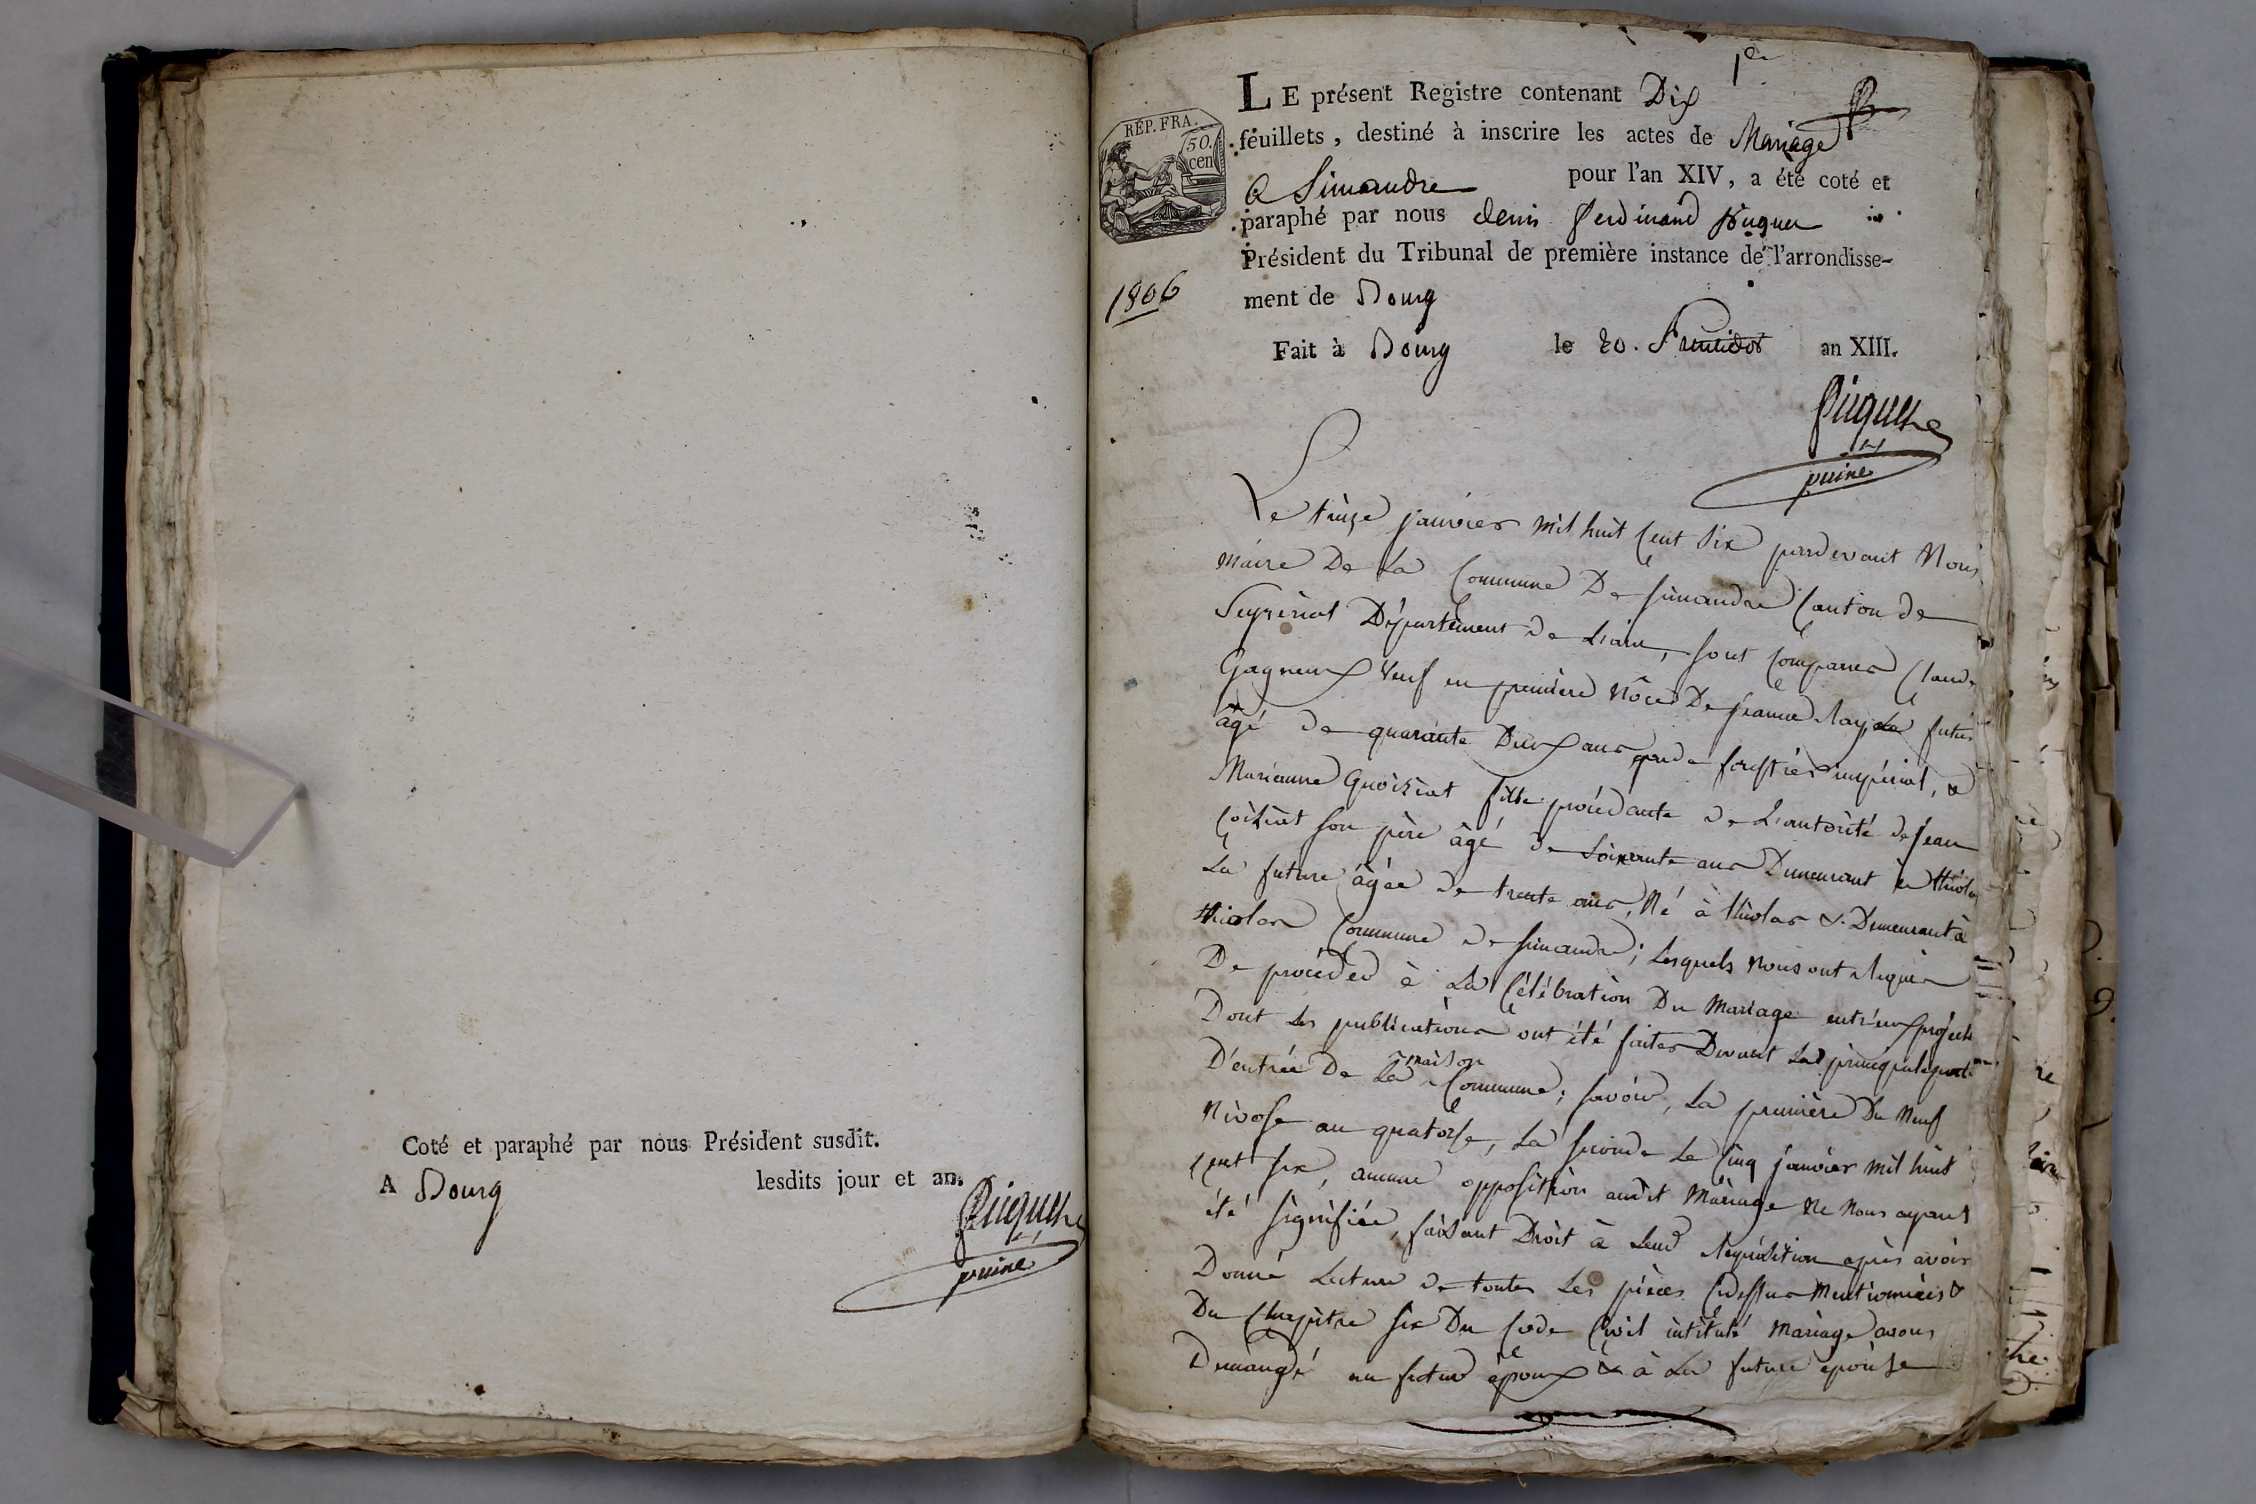 Coté et paraphé par nous Président susdit.
A Bourg lesdits jour et an.
Puiguet
puiné
1er
LE présent Registre contenant Dix
feuillets, destiné à inscrire les actes de Mariage
a Simandre pour l'an XIV, a été coté et
paraphé par nous denis ferdinand
Président du Tribunal de première instance de l'arrondisse-
ment de Bourg
Fait à Bourg le 20. Fructidor an XIII.
puiné
RÉP. FRA.
50.
cen
1806
Le treize janvier mil huit Cent Six pardevant Nous
maire De La Commune De Simandre Canton de
Seyzériat Département de L'ain, sont Comparus Claude
Gagneux Veuf en première Nôces De jeanne Ray, Le futur
âgé de quarante Deux ans garde forestier impérial, &
Marianne Quoiziat fille procédante de L'autorité de jean
Coiziat son père âgé de Soixante ans Demeurant à thiolas
La future âgée de trente ans, Né à thiolas & Demeurant à
thiolas Commune de Simandre; Lesquels Nous ont Requis
De procéder à La Célébration Du Mariage entr'eux projeté
Dont Les publications ont été faites Devant La principale porte
D'entrée De La maison Commune; savoir, La première Du Neuf
Nivose an quatorse, La seconde Le Cinq janvier mil huit
Cent six, aucune opposition audit Mariage Ne Nous ayant
été signifiée, faisant Droit à Leur Réquisition après avoir
Donné Lecture de toutes Les pièces Cidessus Mentionnées &
Du Chapitre six Du Code Civil intitulé Mariage avons
Demandé au futur époux & à La future épouse